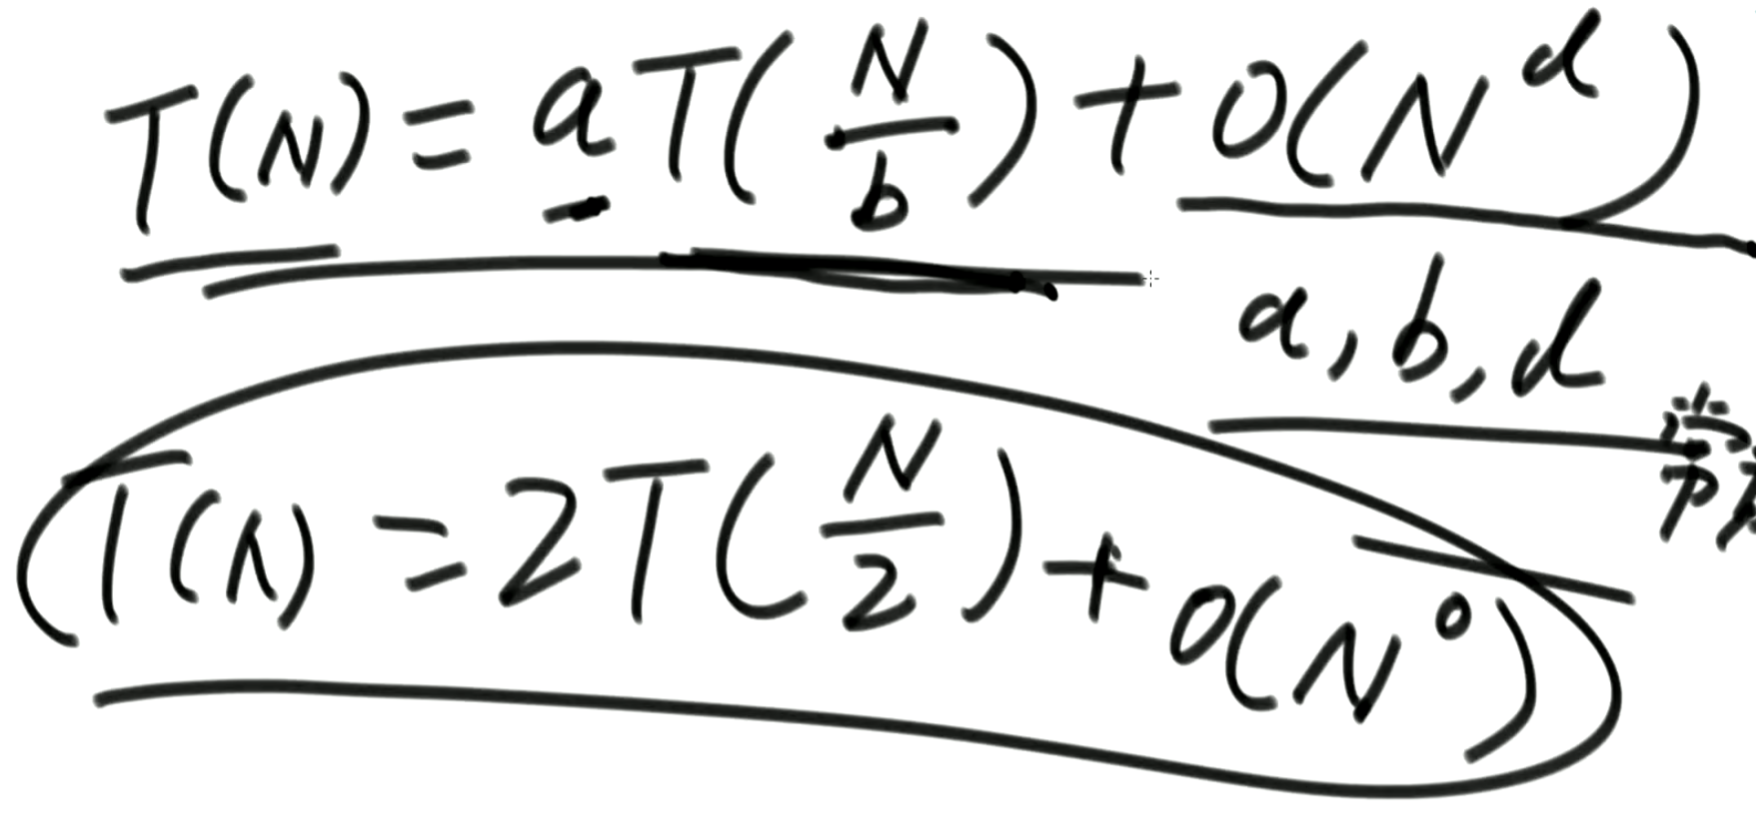 T(N) = aT(N/b) + O(N^d)
a, b, d
常
T(N) = 2T(N/2) + O(N^0)